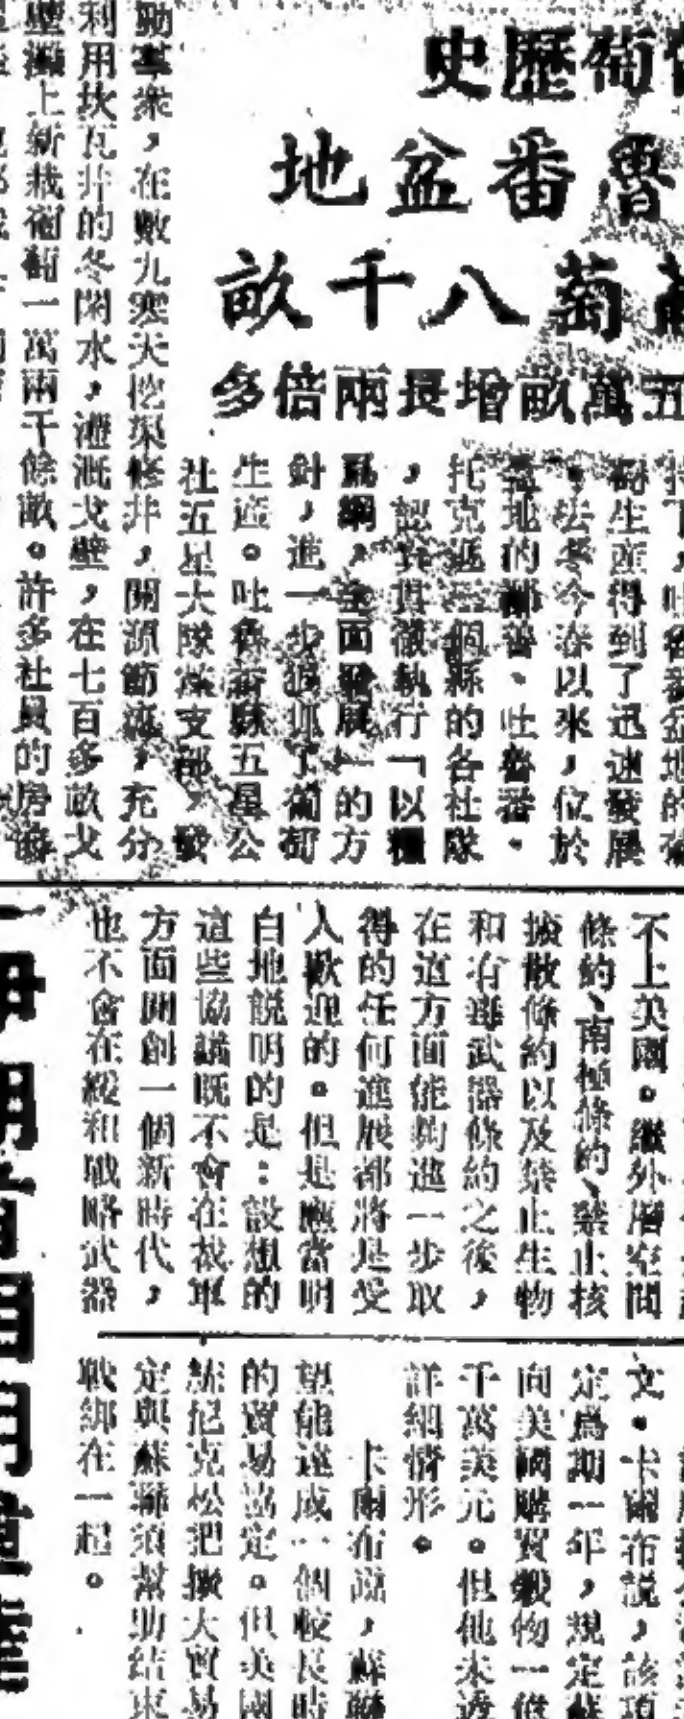 葡歷史
魯番盆地
萄八千畝
五萬畝增長兩倍多
吐魯番盆地的葡
萄生產得到了迅速發展
。去冬今春以來，位於
盆地的鄯善、吐魯番、
托克遜三個縣的各社隊
，認真貫徹執行「以糧
爲綱，全面發展」的方
針，進一步狠抓了葡萄
生產。吐魯番縣五星公
社五星大隊黨支部，發
動羣衆，在數九寒天挖渠修井，開源節流，充分
利用坎瓦井的冬閑水，灌溉戈壁，在七百多畝戈
壁灘上新栽葡萄一萬兩千餘畝。許多社員的房前
不上美國。繼外層空間
條約、南極條約、禁止核
擴散條約以及禁止生物
和有毒武器條約之後，
在這方面能夠進一步取
得的任何進展都將是受
人歡迎的。但是應當明
白地說明的是：設想的
這些協議既不會在裁軍
方面開創一個新時代，
也不會在緩和戰略武器
文。卡爾布說，該項
定爲期一年，規定蘇
向美國購買穀物一億
千萬美元。但他未透
詳細情形。
卡爾布說，蘇聯
望能達成一個較長時
的貿易協定。但美國
統尼克松把擴大貿易
定與蘇聯須幫助結束
戰綁在一起。